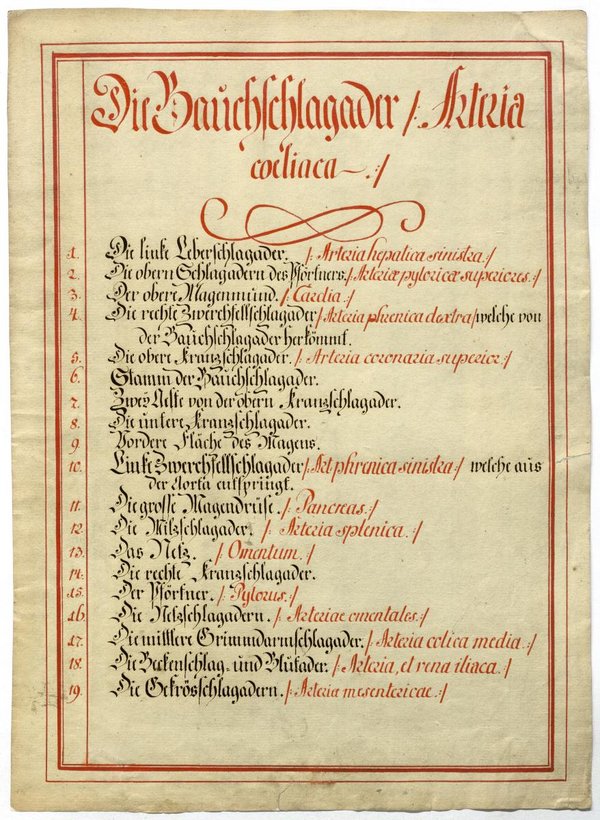 Die Bauchschlagader /: Arteria
coeliaca :/
1. Die linke Leberschlagader. /: Arteria hepatica sinistra :/
2. Die obern Schlagadern des Pförtners. /: Arteriæ pyloricæ superiores. :/
3. Der obere Magenmund. /: Cardia :/
4. Die rechte Zwerchfellschlagader /: Arteria phrenica dextra :/ welche von
der Bauchschlagader herkömmt.
5. Die obere Kranzschlagader. /: Arteria coronaria superior :/
6. Stamm der Bauchschlagader.
7. Zwey Aeste von der obern Kranzschlagader.
8. Die untere Kranzschlagader.
9. Vordere Fläche des Magens.
10. Linke Zwerchfellschlagader /: Art phrenica sinistra :/ welche aus
der Aorta entspringt.
11. Die grosse Magendrüse. /: Pancreas :/
12. Die Milzschlagader. /: Arteria splenica. :/
13. Das Netz. /: Omentum. :/
14. Die rechte Kranzschlagader.
15. Der Pförtner. /: Pylorus. :/
16. Die Netzschlagadern. /: Arteriae omentales. :/
17. Die mittlere Grimmdarmschlagader. /: Arteria colica media. :/
18. Die Beckenschlag. und Blutader. /: Arteria, et vena iliaca. :/
19. Die Gekrösschlagadern. /: Arteria mesentericae. :/